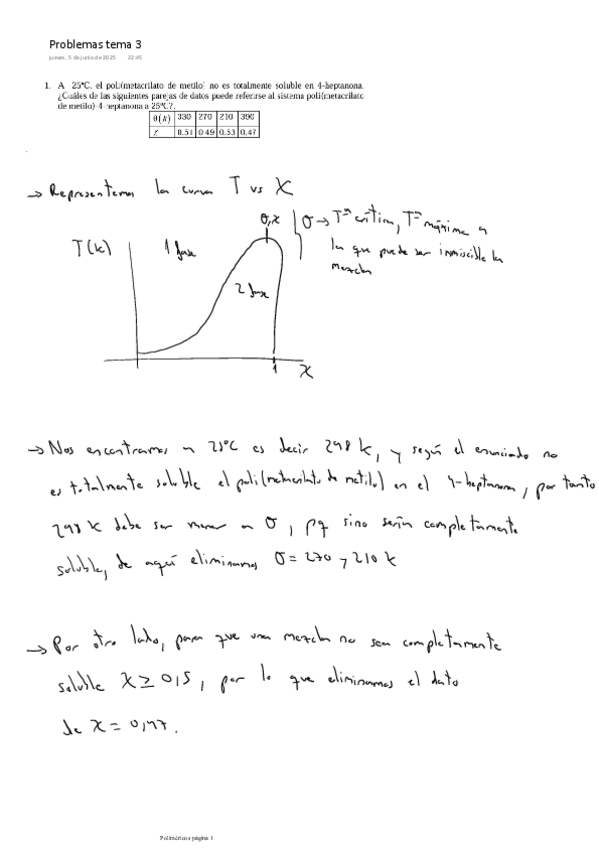 Problemas tema 3
jueves, 5 de junio de 2025 22:45
1. A 25ºC, el poli(metacrilato de metilo) no es totalmente soluble en 4-heptanona.
¿Cuáles de las siguientes parejas de datos puede referirse al sistema poli(metacrilato
de metilo) 4-heptanona a 25ºC?.
θ(k) 330 270 210 390
χ 0.51 0.49 0.53 0.47
→ Representamos la curva T vs χ
T(k) 1 fase 2 fase
σ, χ
σ → Tª crítica, Tª máxima a
la que puede ser inmiscible la
mezcla
1 χ
→ Nos encontramos a 25ºC es decir 298 k, y según el enunciado no
es totalmente soluble el poli(metacrilato de metilo) en el 4-heptanona, por tanto
298 k debe ser menor a σ, pq sino sería completamente
soluble, de aquí eliminamos σ = 270 y 210 k
→ Por otro lado, para que una mezcla no sea completamente
soluble χ ≥ 0,5, por lo que eliminamos el dato
de χ = 0,47.
Polímeros página 1